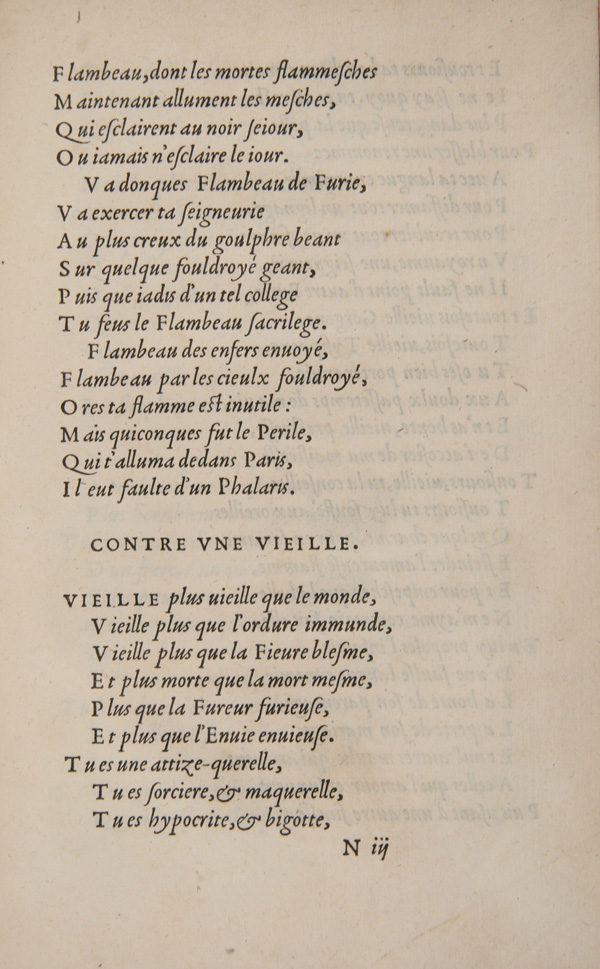 Flambeau, dont les mortes flammeſches
Maintenant allument les meſches,
Qui eſclairent au noir ſeiour,
Ou iamais n'eſclaire le iour.
Va donques Flambeau de Furie,
Va exercer ta ſeigneurie
Au plus creux du goulphre beant
Sur quelque fouldroyé geant,
Puis que iadis d'un tel college
Tu feus le Flambeau ſacrilege.
Flambeau des enfers enuoyé,
Flambeau par les cieulx fouldroyé,
Ores ta flamme eſt inutile :
Mais quiconques fut le Perile,
Qui t'alluma dedans Paris,
Il eut faulte d'un Phalaris.
CONTRE VNE VIEILLE.
VIEILLE plus uieille que le monde,
Vieille plus que l'ordure immunde,
Vieille plus que la Fieure bleſme,
Et plus morte que la mort meſme,
Plus que la Fureur furieuſe,
Et plus que l'Enuie enuieuſe.
Tu es une attize-querelle,
Tu es ſorciere, & maquerelle,
Tu es hypocrite, & bigotte,
N iij